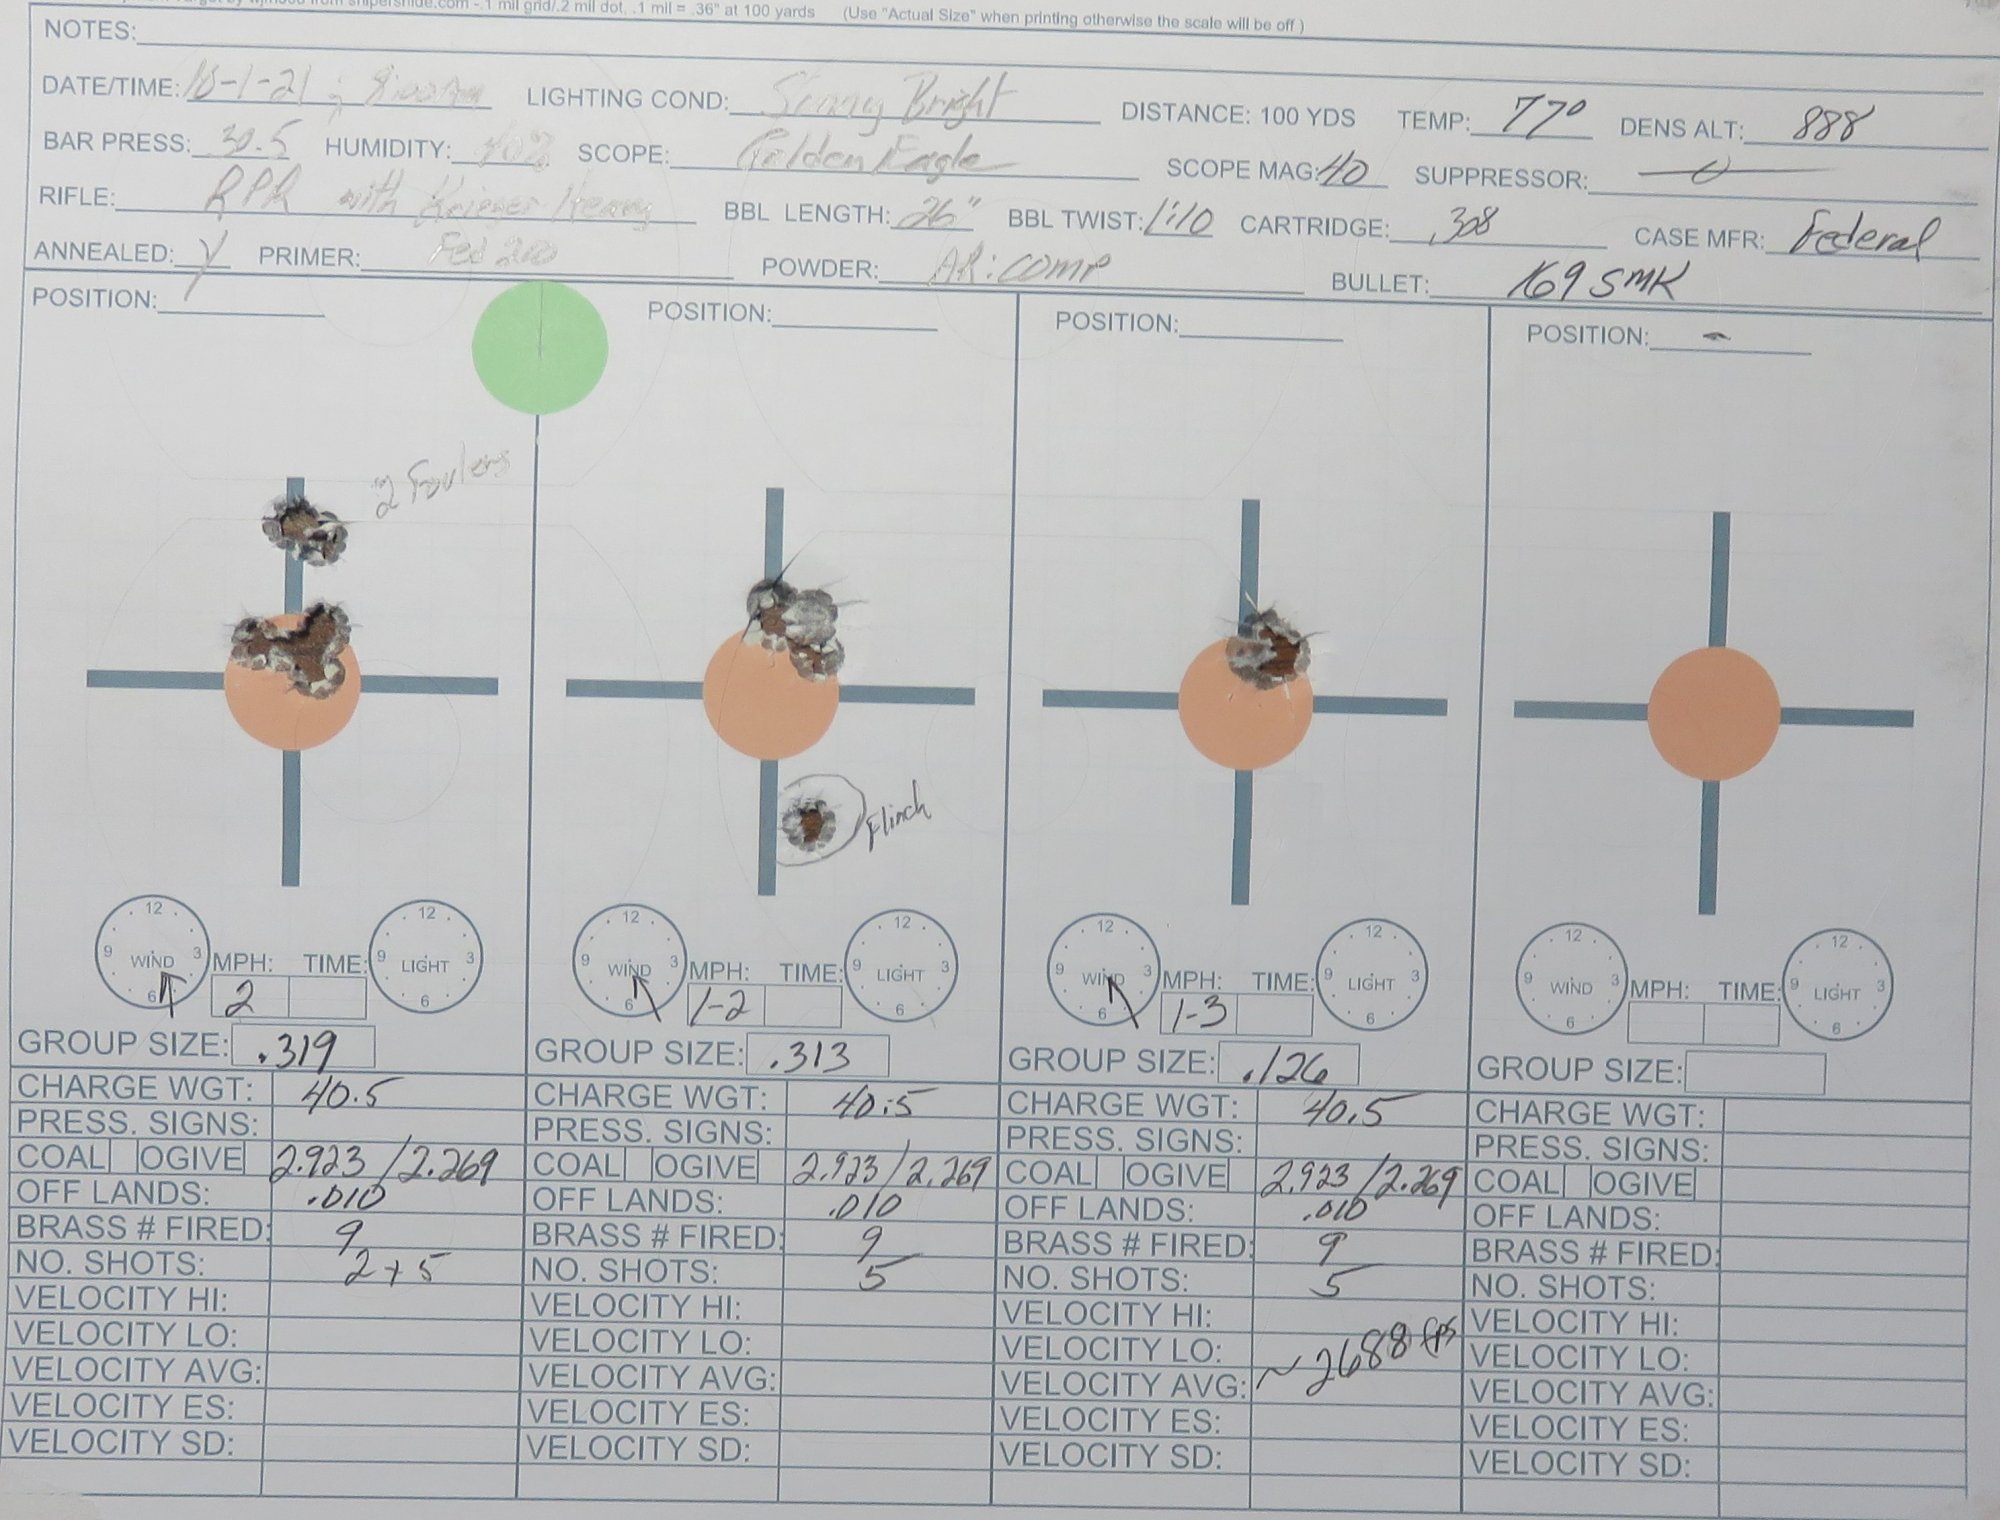 from snipershide.com - .1 mil grid/.2 mil dot, .1 mil = .36" at 100 yards (Use "Actual Size" when printing otherwise the scale will be off )
NOTES:
DATE/TIME: 10-1-21 ; LIGHTING COND: Sunny Bright DISTANCE: 100 YDS TEMP: 77° DENS ALT: 888
BAR PRESS: 30.5 HUMIDITY: 40% SCOPE: Golden Eagle SCOPE MAG: 40 SUPPRESSOR: 0
RIFLE: RPR with Krieger Heavy BBL LENGTH: 26" BBL TWIST: 1:10 CARTRIDGE: .308 CASE MFR: Federal
ANNEALED: Y PRIMER: Fed 210 POWDER: AR:COMP BULLET: 169 SMK
POSITION: POSITION: POSITION: POSITION: -
2 Foulers
Flinch
12 12 12 12 12 12 12 12
9 WIND 3 MPH: TIME: 9 LIGHT 3 9 WIND 3 MPH: TIME: 9 LIGHT 3 9 WIND 3 MPH: TIME: 9 LIGHT 3 9 WIND 3 MPH: TIME: 9 LIGHT 3
6 2 6 6 1-2 6 6 1-3 6 6 6
GROUP SIZE: .319 GROUP SIZE: .313 GROUP SIZE: .126 GROUP SIZE:
CHARGE WGT: 40.5 CHARGE WGT: 40.5 CHARGE WGT: 40.5 CHARGE WGT:
PRESS. SIGNS: PRESS. SIGNS: PRESS. SIGNS: PRESS. SIGNS:
COAL OGIVE 2.923/2.269 COAL OGIVE 2.923/2.269 COAL OGIVE 2.923/2.269 COAL OGIVE
OFF LANDS: .010 OFF LANDS: .010 OFF LANDS: .010 OFF LANDS:
BRASS # FIRED: 9 BRASS # FIRED: 9 BRASS # FIRED: 9 BRASS # FIRED:
NO. SHOTS: 2+5 NO. SHOTS: 5 NO. SHOTS: 5 NO. SHOTS:
VELOCITY HI: VELOCITY HI: VELOCITY HI: VELOCITY HI:
VELOCITY LO: VELOCITY LO: VELOCITY LO: VELOCITY LO:
VELOCITY AVG: VELOCITY AVG: VELOCITY AVG: ~2688 fps VELOCITY AVG:
VELOCITY ES: VELOCITY ES: VELOCITY ES: VELOCITY ES:
VELOCITY SD: VELOCITY SD: VELOCITY SD: VELOCITY SD: